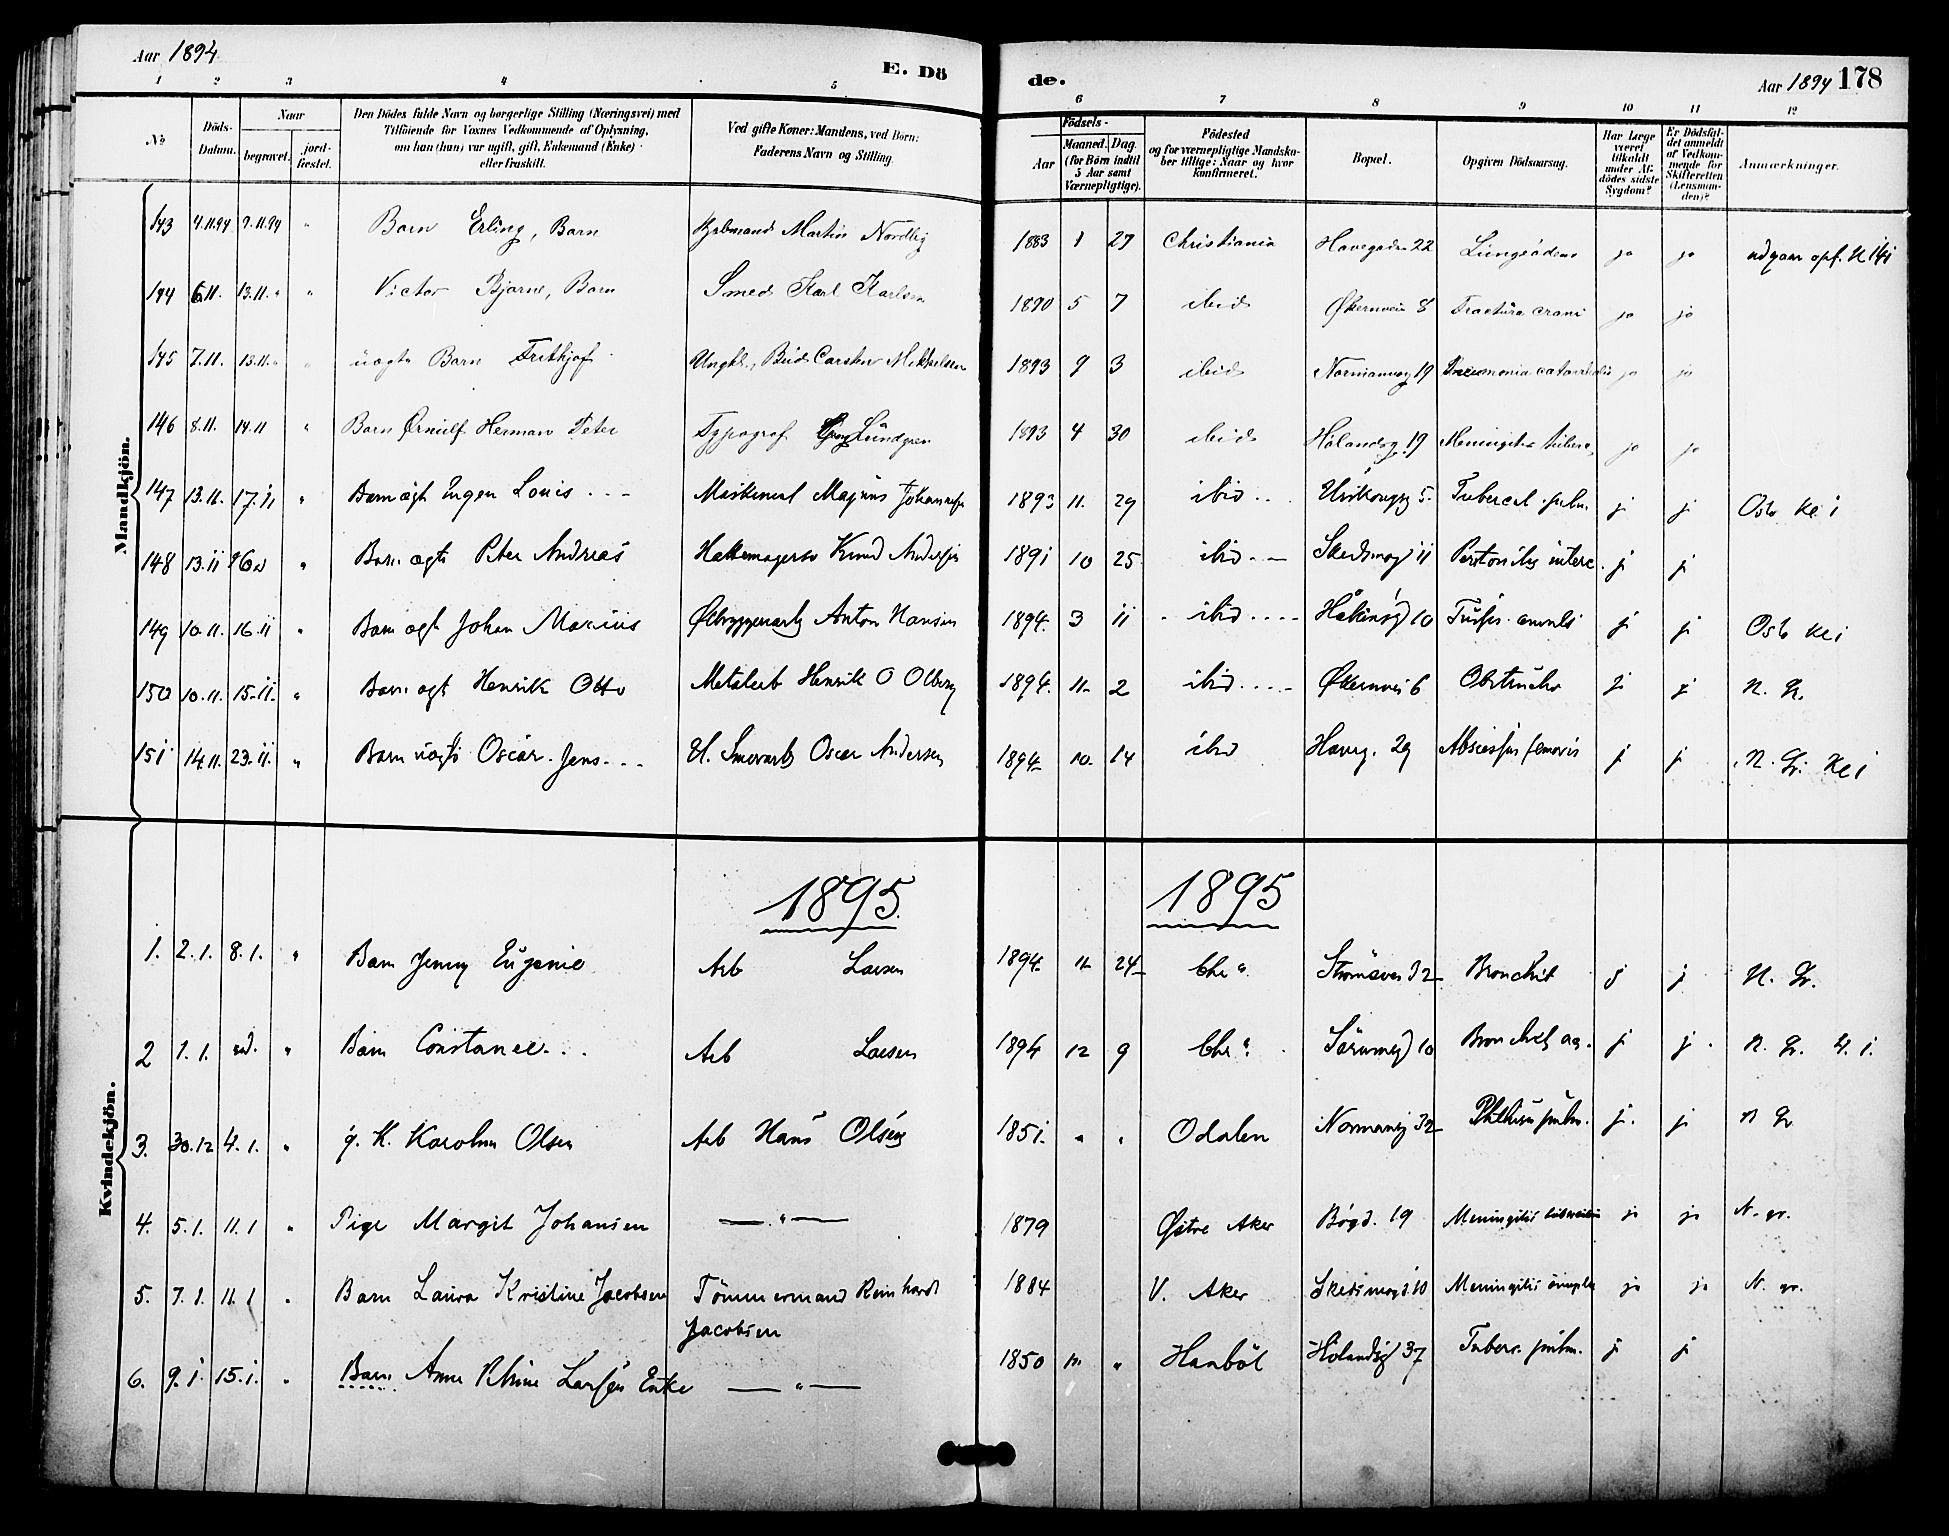 Aar 1894
E. Dö
de.
Aar 1894 178
1 2 3 4 5 6 7 8 9 10 11 12
No
Döds-Datum.
Naar
begravet.
jord-fæstet.
Den Dödes fulde Navn og borgerlige Stilling (Næringsvei) med
Tilföiende for Voxnes Vedkommende af Oplysning,
om han (hun) var ugift, gift, Enkemand (Enke)
eller fraskilt.
Ved gifte Koner: Mandens, ved Börn:
Faderens Navn og Stilling.
Födsels-
Aar
Maaned. Dag.
(for Börn indtil
5 Aar samt
Værnepligtige).
Födested
og for værnepligtige Mandska-
ber tillige: Naar og hvor
konfirmeret.
Bopæl.
Opgiven Dödsaarsag.
Har Læge
været
tilkaldt
under Af-
dödes sidste
Sygdom?
Er Dödsfal-
det anmeldt
af Vedkom-
mende for
Skifteretten
(Lensman-
den)?
Anmærkninger.
Mandkjön.
143 4.11.94 9.11.94 " Barn Erling, Barn Martin Nordby 1883 1 27 Christiania Havegaden 22 ja ja
144 6.11. 13.11. " Victor Bjarne, Barn Smed Karl Karlsen 1890 5 7 ibid Økernveien 8 Fractura cranii ja ja
145 7.11. 13.11. " uægte Barn Frithjof Ungkl., Bud Carsten Mikkelsen 1893 9 3 ibid Normannsg 19 Pneumonia catarrhalis ja ja
146 8.11. 14.11 " Barn Ørnulf Herman Peter Typograf Lundgren 1893 4 30 ibid Hølandsg. 19 Meningitis tuberc. ja ja
147 13.11. 17.11 " Barn ægt Ingen Louis Maskinist Magnus Johannesen 1893 11. 29 ibid 5. Tubercul. pulm. j j
148 13.11 " Barn ægte Peter Andreas Knud Andersen 1891 10 25 ibid Skedsmog 11 j j
149 10.11. 16.11 " Barn ægt Johan Marius Ølbryggeriarb Anton Hansen 1894. 3 11 ibid 10 j j
150 10.11. 15.11. " Barn ægt Henrik Otto Metalarb Henrik O Olberg 1894. 11 2 ibid Økernvei 6 j j N. Gr.
151 14.11. 23.11. " Barn uægte Oscar Jens Oscar Andersen 1894 10 14 ibid Haveg. 29 Abscessus femoris j j N. Gr.
1895. 1895
Kvindekjön.
1. 2.1. 8.1. " Barn Jenny Eugenie Arb Larsen 1894 11 24 Chr a. Strømsvei 32 Bronchit j j N. Gr.
2 1.1. " Barn Constance Arb Larsen 1894 12 9 Chr a. Sørumsg 10 j j N. Gr.
3. 30.12 4.1. " g. K. Karoline Olsen Arb Hans Olsen 1851. " " Odalen Normansg 32 Phthisis pulm. j. j N Gr
4. 5.1. 11.1 " Pige Margit Johansen — " — 1879 Østre Aker Bøgd. 19 Meningitis ja ja N. gr.
5. 7.1. 11.1 " Barn Laura Kristine Jacobsen Tømmermand Reinhardt
Jacobsen 1884 V. Aker Skedsmogd. 10 Meningitis simplex ja ja N. gr.
6. 9.1. 15.1. " Barn Anne Larsen Enke — " — 1850 " Hølandsg 37 Tuberc. pulm. j j